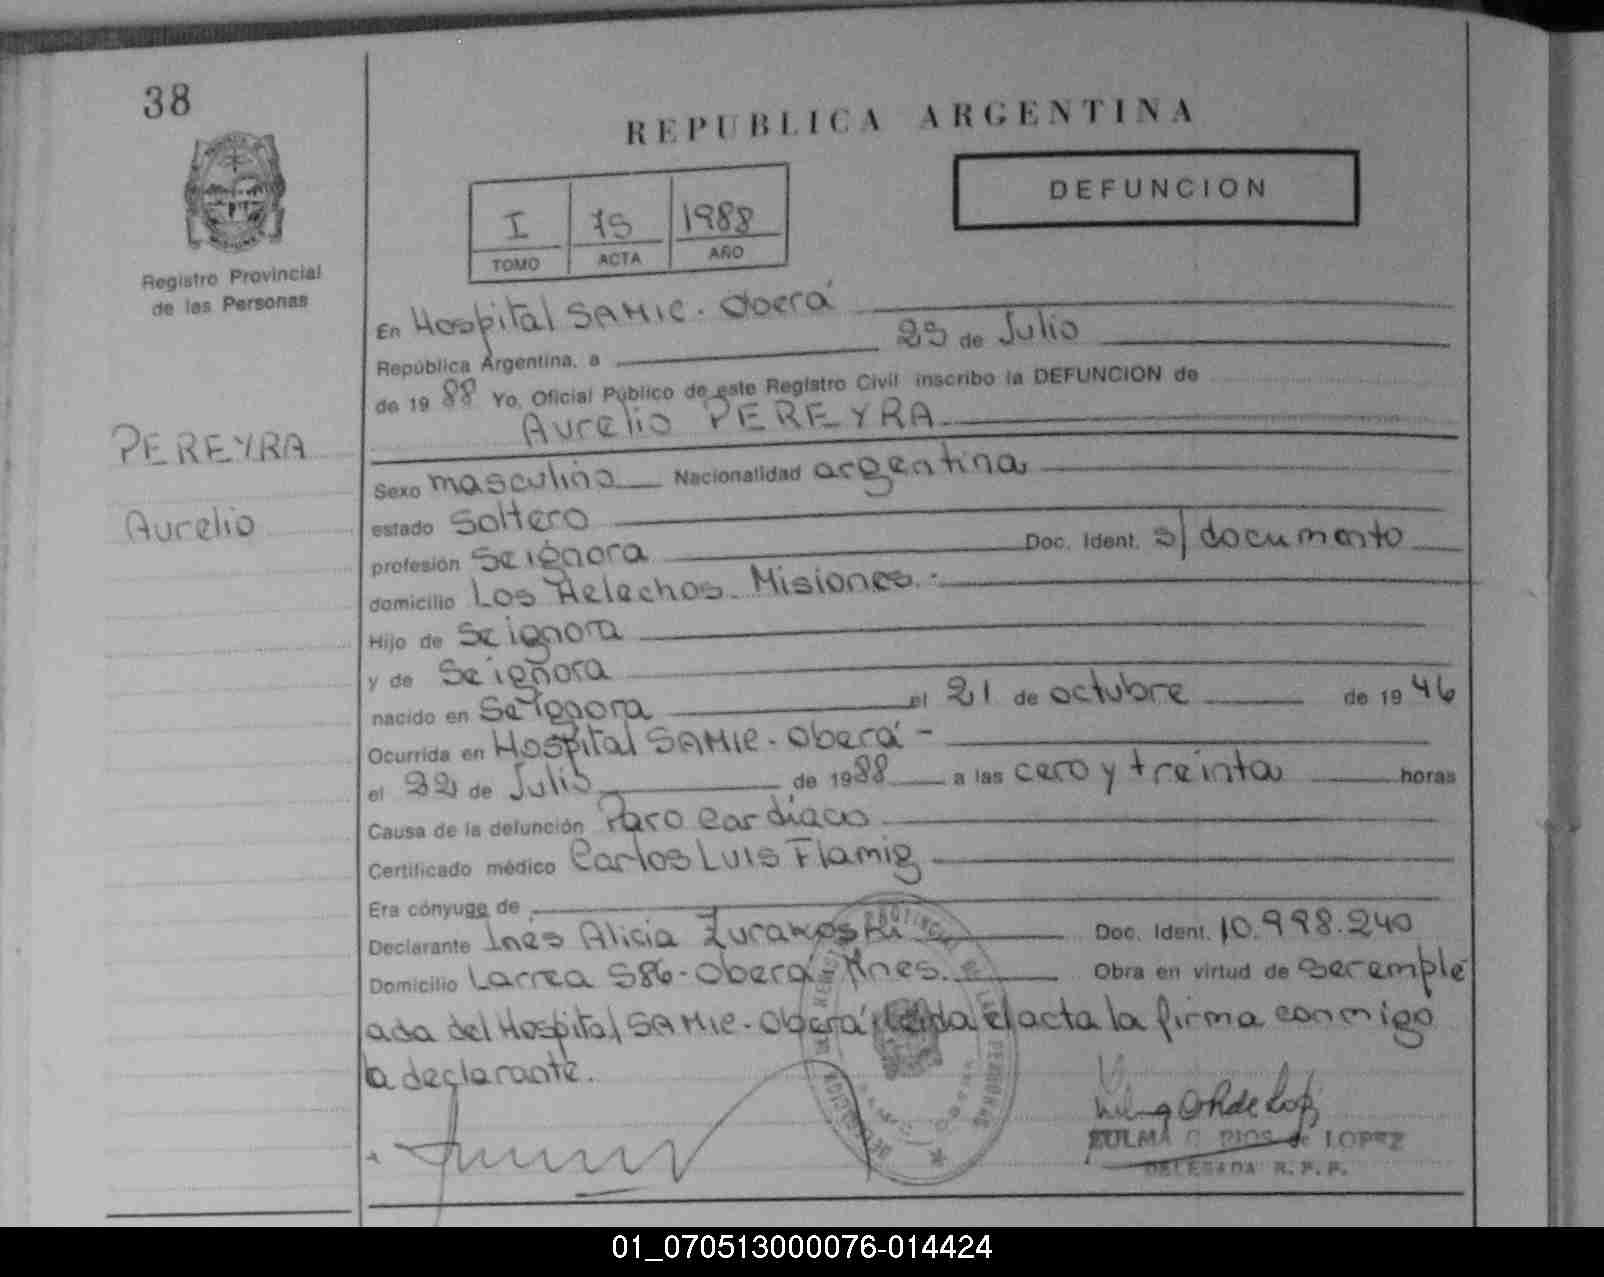 38
REPUBLICA ARGENTINA
DEFUNCION
I 75 1988
TOMO ACTA AÑO
Registro Provincial
de las Personas
En Hospital SAMIC. Oberá
República Argentina, a 25 de Julio
de 19 88 Yo, Oficial Público de este Registro Civil inscribo la DEFUNCION de
Aurelio PEREYRA
PEREYRA
Aurelio
Sexo masculino Nacionalidad argentina
estado Soltero
profesión Se ignora Doc. Ident. s/documento
domicilio Los Helechos. Misiones.-
Hijo de Se ignora
y de Se ignora
nacido en Se ignora el 21 de octubre de 19 46
Ocurrida en Hospital SAMIC. Oberá -
el 22 de Julio de 1988 a las cero y treinta horas
Causa de la defunción Paro Cardíaco
Certificado médico Carlos Luis Flamig
Era cónyuge de
Declarante Inés Alicia Zurakoski Doc. Ident. 10.998.240
Domicilio Larrea 586-Oberá Mnes. Obra en virtud de ser emple
ada del Hospital SAMIC. Oberá leída el acta la firma conmigo
la declarante.
ZULMA RIOS de LOPEZ
DELEGADA R. P. P.
01_070513000076-014424